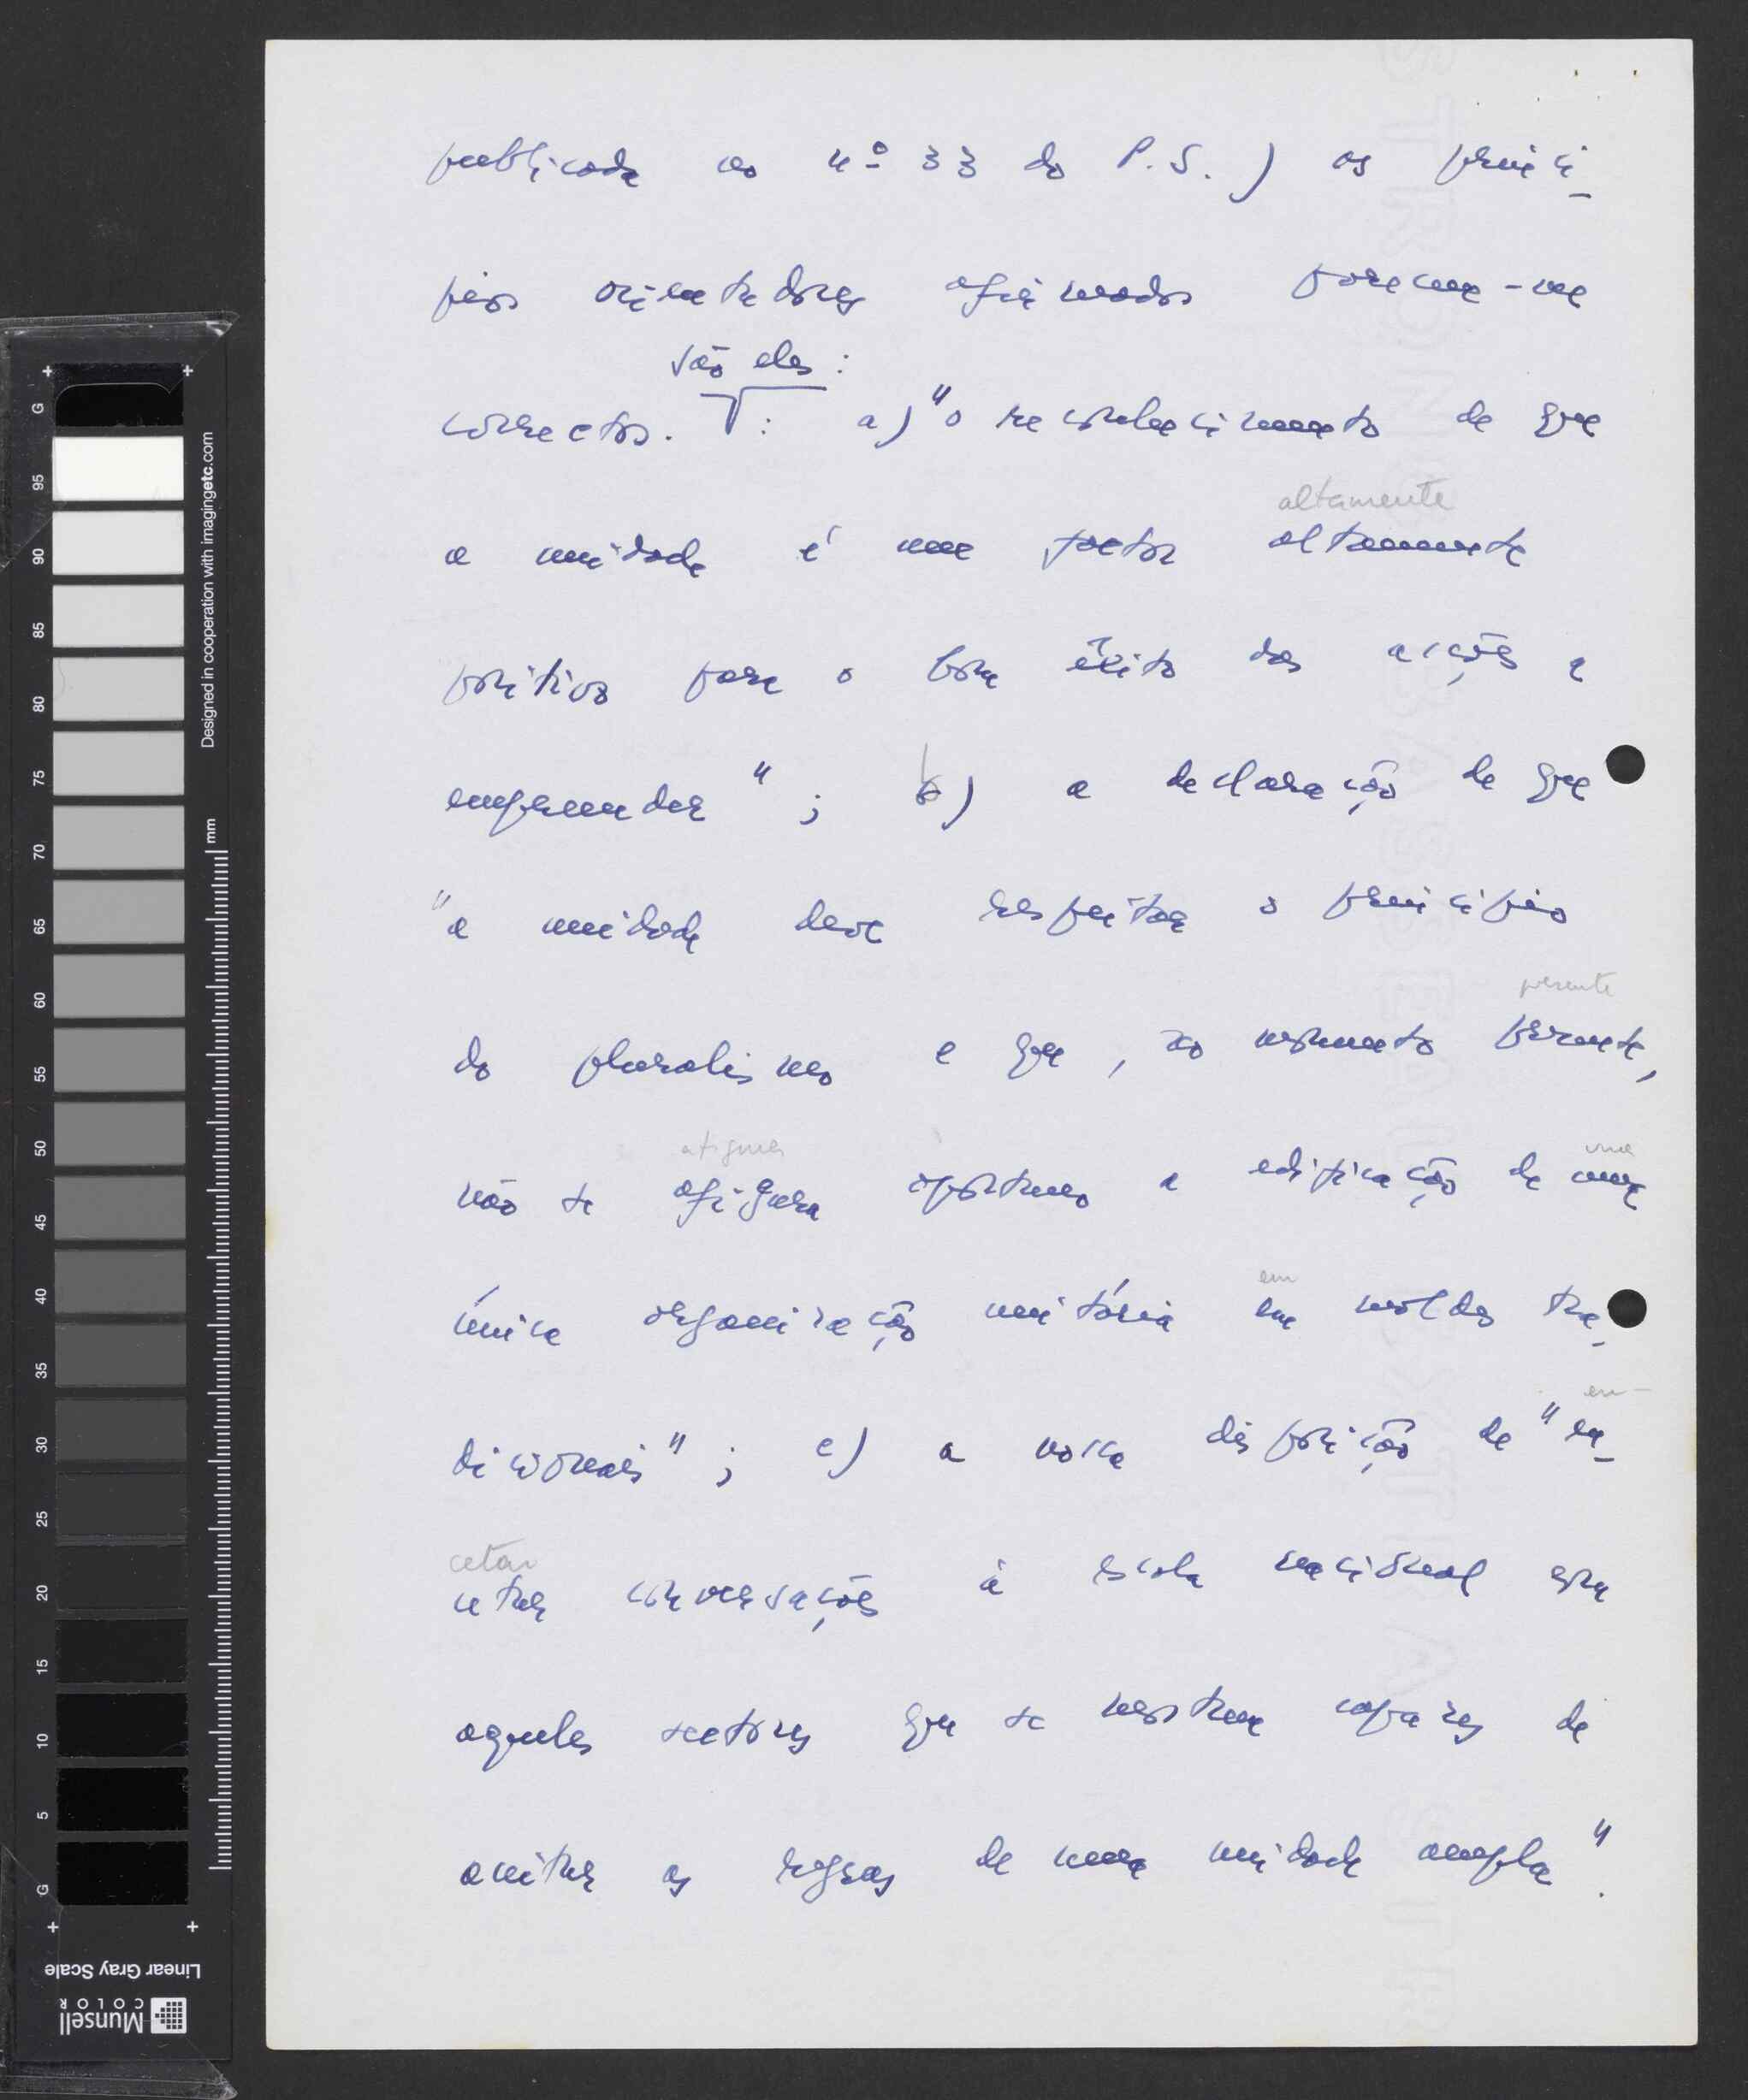 publicada no nº 33 do P.S.) os princi-
pios orientadores afirmados parecem-me
são eles:
correctos. : a) "o reconhecimento de que
altamente
a unidade é um factor altamente
positivo para o bom êxito das acções a
empreender"; b) a declaração de que
"a unidade deve respeitar o princípio
presente
do pluralismo e que, no momento presente,
afigura uma
não se afigura oportuno a edificação de uma
em
única organização unitária em moldes tra-
en-
dicionais"; c) a nossa disposição de "en-
cetar
cetar conversações à escala nacional com
aqueles sectores que se mostrem capazes de
aceitar as regras de uma unidade ampla".
G
95
90
85
80
75
70
65
60
55
50
45
40
35
30
25
20
15
10
5
G
mm
Designed in cooperation with imagingetc.com
Linear Gray Scale
Munsell
COLOR